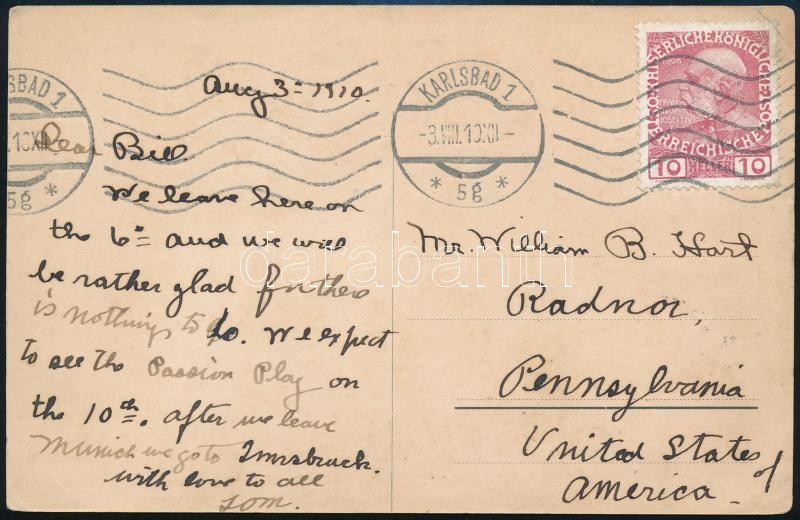 Aug 3= 1910.
Dear Bill
We leave here on
the 6= and we will
be rather glad for there
is nothing to
do. We expect
to see the Passion Play on
the 10th. after we leave
Munich we go to Innsbruck.
with love to all
Tom.
SBAD 1
.10XII
* 5g *
KARLSBAD 1
-3.VIII.10XII-
* 5g *
KAISERLICHEKÖNIGLICHE
ÖSTERREICHISCHE
1908
10 HELLER 10
Mr. William B. Hart
Radnor,
Pennsylvania
United States
of
America.
darabanth